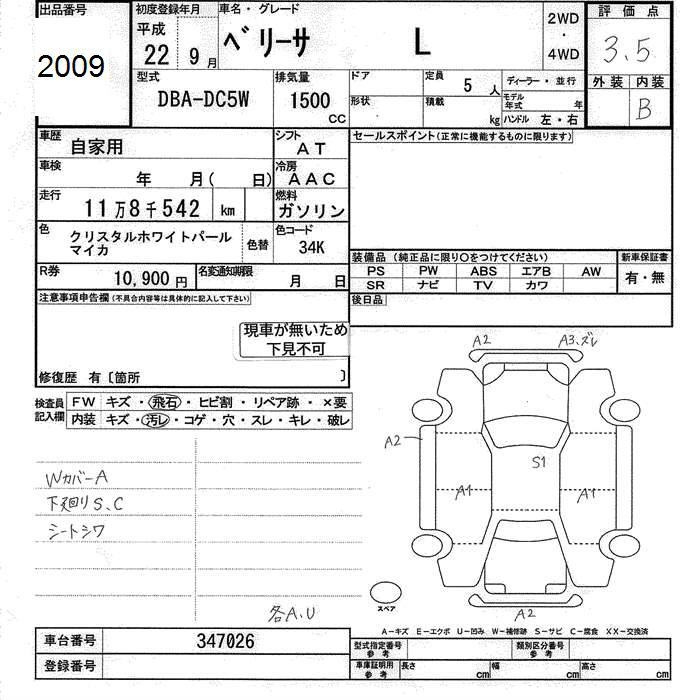 出品番号 初度登録年月 車名・グレード 2WD・4WD 評価点
2009 平成22 9月 ベリーサ L 3.5
型式 排気量 ドア 定員 5人 ディーラー・並行 外装 内装
DBA-DC5W 1500cc 形状 積載 kg モデル年式 年 ハンドル 左・右 B
車歴 自家用 シフト AT セールスポイント(正常に機能するものに限ります)
車検 年 月( 日) 冷房 AAC
走行 11万8千542 km 燃料 ガソリン
色 クリスタルホワイトパールマイカ 色替 色コード 34K
装備品(純正品に限り○をつけてください) 新車保証書
PS PW ABS エアB AW 有・無
SR ナビ TV カワ
R券 10,900円 名変通知期限 月 日
後日品
注意事項申告欄(不具合内容等は具体的に記入して下さい)
現車が無いため
下見不可
修復歴 有〔箇所 〕
検査員記入欄 FW キズ・飛石・ヒビ割・リペア跡・×要
内装 キズ・汚レ・コゲ・穴・スレ・キレ・破レ
A2 A3、ズレ
A2
S1
A1 A1
WカバーA
下廻りS、C
シートシワ
各A、U
スペア
A2
A-キズ E-エクボ U-凹み W-補修跡 S-サビ C-腐食 XX-交換済
車台番号 347026 型式指定番号 参考 類別区分番号 参考
登録番号 車庫証明用 参考 長さ cm 幅 cm 高さ cm